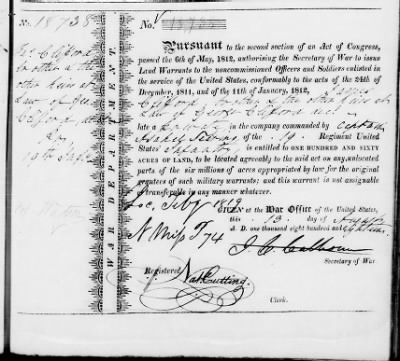 No. 18738
No.
Js. Clifford
brother & the
other heirs at
Law of Geo.
Clifford decd
19th Inft
WAR DEPARTMENT.
Pursuant to the second section of an Act of Congress,
passed the 6th of May, 1812, authorising the Secretary of War to issue
Land Warrants to the noncommissioned Officers and Soldiers enlisted in
the service of the United States, conformably to the acts of the 24th of
December, 1811, and of the 11th of January, 1812, James
Clifford, brother & the other heirs at
Law of George Clifford decd.
late a private in the company commanded by Captain
of the 19 Regiment United
States Infantry is entitled to ONE HUNDRED AND SIXTY
ACRES OF LAND, to be located agreeably to the said act on any unlocated
parts of the six millions of acres appropriated by law for the original
grantees of such military warrants; and this warrant is not assignable
or transferable in any manner whatever.
Loc. Feby 1819
GIVEN at the War Office of the United States,
this 13 day of August
A. D. one thousand eight hundred and eighteen.
J. C. Calhoun
Secretary of War
Registered Nat. Cutting
Clerk.